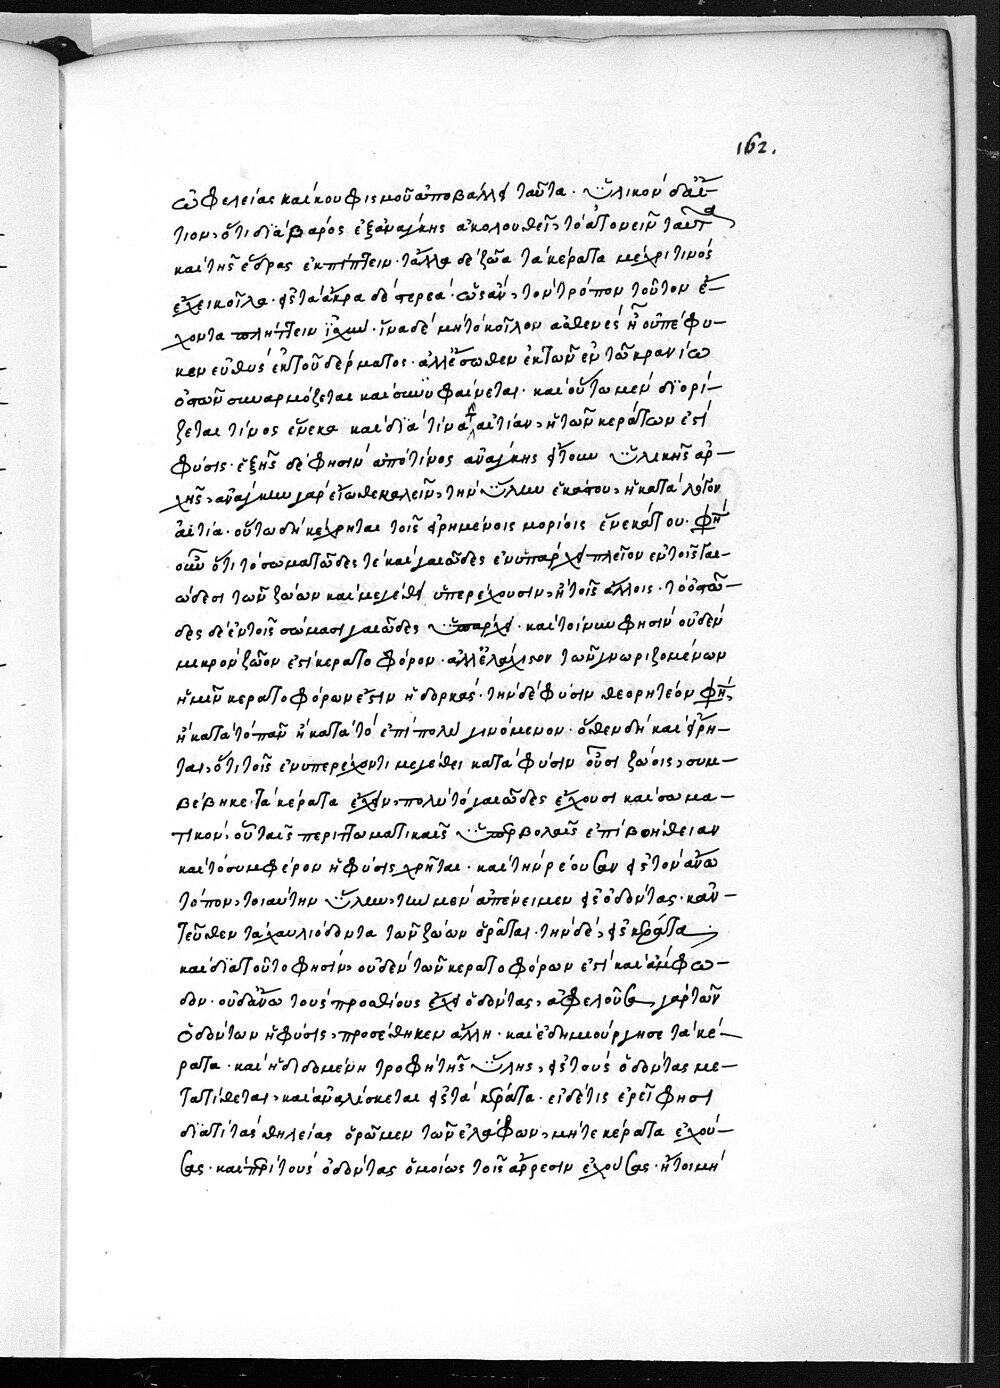 162.
ὠφελείας καὶ κουφισμοῦ ἀποβάλλει ταῦτα· ὑλικὸν δ' αἴ-
τιον, ὅτι διὰ βάρος ἐξ ἀνάγκης ἀκολουθεῖ, τὸ ἀτονεῖν ταῦτα
καὶ τῆς ἕδρας ἐκπίπτειν· τἄλλα δὲ ζῷα τὰ κέρατα μέχρι τινὸς
ἔχει κοῖλα· εἰς τὰ ἄκρα δὲ στερεά· ὡς ἂν, τὸν τρόπον τοῦτον ἔ-
χοντα πλήττειν ἰσχύῃ· ἵνα δὲ μὴ τὸ κοῖλον ἀσθενὲς ᾖ οὐ πέφυ-
κεν εὐθὺς ἐκ τοῦ δέρματος· ἀλλ' ἔσωθεν ἐκ τῶν ἐν τῷ κρανίῳ
ὀστῶν συναρμόζεται καὶ συμφαίνεται· καὶ οὕτω μὲν διορί-
ζεται τίνος ἕνεκα καὶ διὰ τίνα τὴν αἰτίαν, ἡ τῶν κεράτων ἐστὶ
φύσις· ἑξῆς δὲ φησὶν ἀπὸ τίνος ἀνάγκης ἤτοι ὑλικῆς ἀρ-
χῆς, ἀνάγκην γὰρ εἴωθε καλεῖν, τὴν ὕλην ἑκάστου, ἡ κατὰ λόγον
αἰτία· οὕτω δὴ κέχρηται τοῖς εἰρημένοις μορίοις ἕνεκά του· φησὶν
οὖν ὅτι τὸ σωματῶδες τὲ καὶ γαιῶδες ἐνυπάρχει πλεῖον ἐν τοῖς γαι-
ώδεσι τῶν ζῴων καὶ μεγέθει ὑπερέχουσιν, ἢ τοῖς ἄλλοις· τὸ ὀστῶ-
δες δὲ ἐν τοῖς σώμασι γαιῶδες ὑπάρχει· καὶ τοίνυν φησὶν οὐδὲν
μικρὸν ζῷον ἐστὶ κερατοφόρον· ἀλλ' ἐλάχιστον τῶν γνωριζομένων
ἡμῖν κερατοφόρων ἐστὶν ἡ δορκάς· τὴν δὲ φύσιν θεορητέον φησὶ,
ἢ κατὰ τὸ πᾶν ἢ κατὰ τὸ ἐπὶ πολὺ γινόμενον· ὅθεν δὴ καὶ εἴρη-
ται, ὅτι τοῖς ἐν ὑπερέχοντι μεγέθει κατὰ φύσιν οὖσι ζῴοις, συμ-
βέβηκε τὰ κέρατα ἔχειν, πολὺ τὸ γαιῶδες ἔχουσι καὶ σωμα-
τικόν· οὗ ταῖς περιττωματικαῖς ὑπερβολαῖς ἐπὶ βοήθειαν
καὶ τὸ συμφέρον ἡ φύσις χρῆται· καὶ τὴν ῥέουσαν εἰς τὸν ἄνω
τόπον, τοιαύτην ὕλην, τὴν μὲν ἀπένειμεν εἰς ὀδόντας· κἀν-
τεῦθεν τὰ χαυλιόδοντα τῶν ζῴων ὁρᾶται· τὴν δὲ, εἰς κέρατα,
καὶ διὰ τοῦτο φησὶν, οὐδὲν τῶν κερατοφόρων ἐστὶ καὶ ἄμφω-
δον· οὐδ' ἄνω τοὺς προσθίους ἔχει ὀδόντας, ἀφελοῦσα, γὰρ τῶν
ὀδόντων ἡ φύσις, προσέθηκεν ἄλλῃ· καὶ ἐδημιούργησε τὰ κέ-
ρατα· καὶ ἡ διδομένη τροφὴ τῆς ὕλης, εἰς τοὺς ὀδόντας με-
τατίθεται, καὶ ἀναλίσκεται εἰς τὰ κέρατα· εἰ δέ τις ἐρεῖ φησὶ
διατί τὰς θηλείας ὁρῶμεν τῶν ἐλάφων, μήτε κέρατα ἐχού-
σας· καὶ περὶ τοὺς ὀδόντας ὁμοίως τοῖς ἄρρεσιν ἐχούσας· ἤτοι μὴ